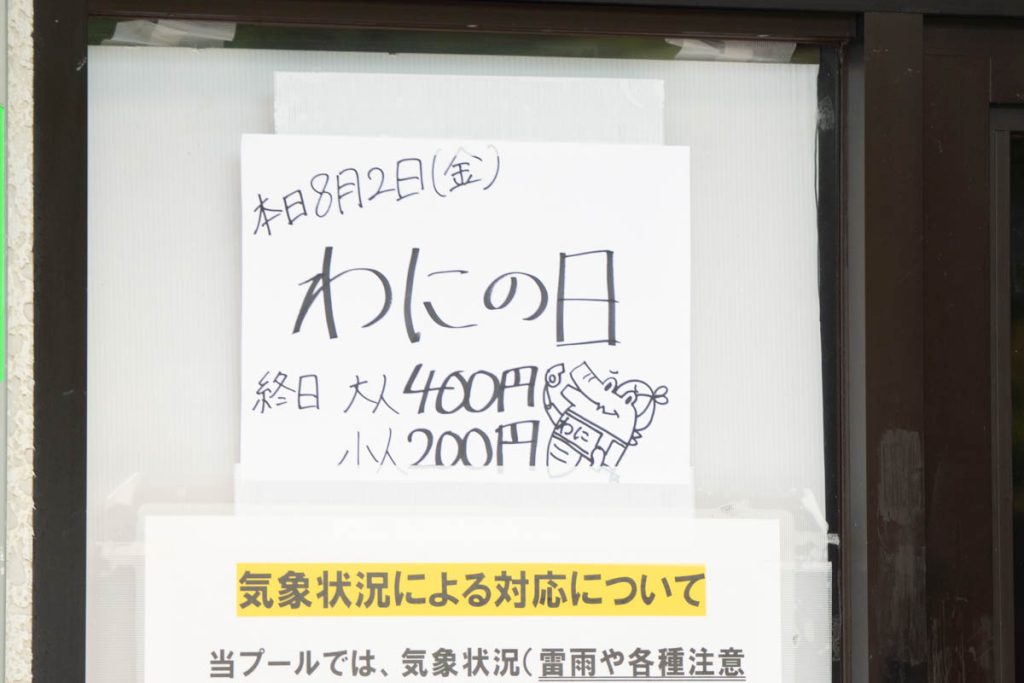 本日8月2日(金)
わにの日
終日 大人 400円
小人 200円
わに
気象状況による対応について
当プールでは、気象状況(雷雨や各種注意